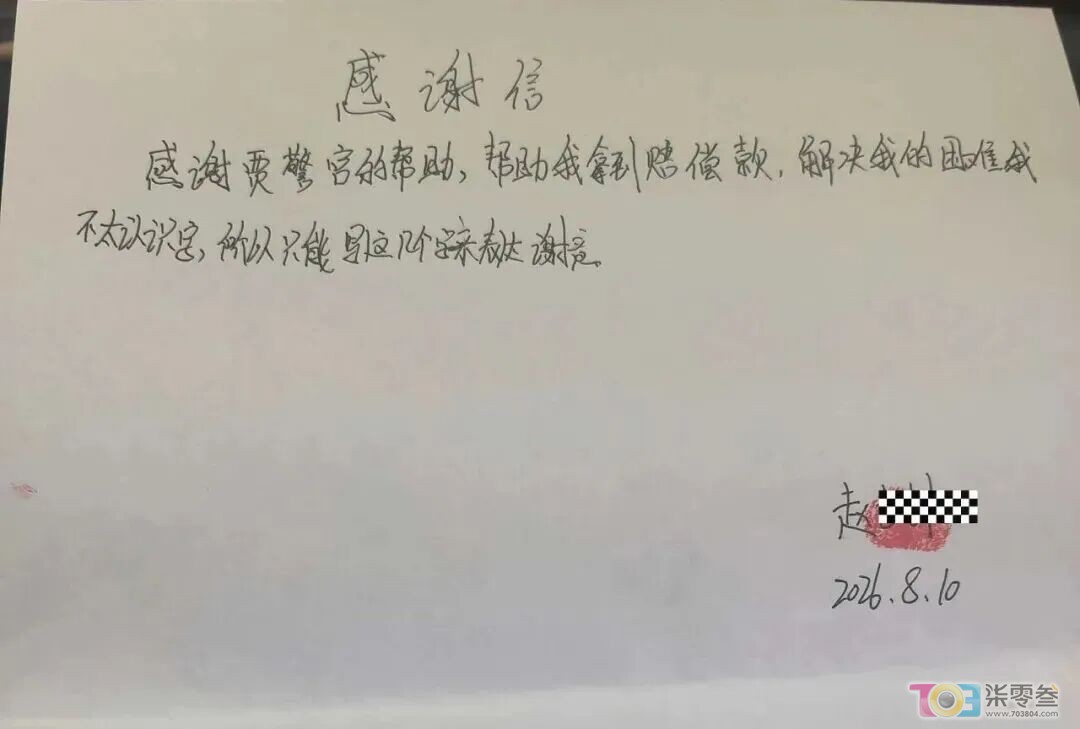 感谢信
感谢贾警官的帮助,帮助我拿到赔偿款,解决我的困难我
不太认识字,所以只能写这几个字来表达谢意。
赵
2026.8.10
TO3 柒零叁
www.703804.com